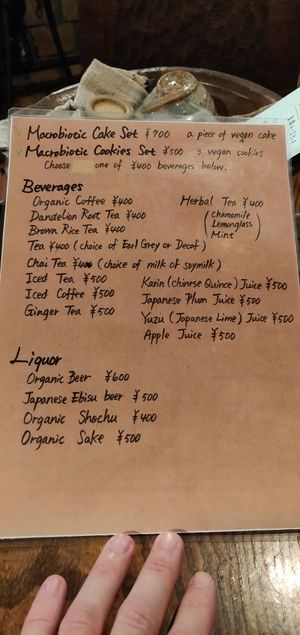 Macrobiotic Cake Set ¥700 a piece of vegan cake
Macrobiotic Cookies Set ¥500 3 vegan cookies
Choose one of ¥400 beverages below.
Beverages
Organic Coffee ¥400
Dandelion Root Tea ¥400
Brown Rice Tea ¥400
Herbal Tea ¥400
(chamomile
Lemonglass
Mint)
Tea ¥400 (choice of Earl Grey or Decaf)
Chai Tea ¥400 (choice of milk of soymilk)
Iced Tea ¥500
Iced Coffee ¥500
Ginger Tea ¥500
Karin (chinese Quince) Juice ¥500
Japanese Plum Juice ¥500
Yuzu (Japanese Lime) Juice ¥500
Apple Juice ¥500
Liquor
Organic Beer ¥600
Japanese Ebisu beer ¥500
Organic Shochu ¥400
Organic Sake ¥500